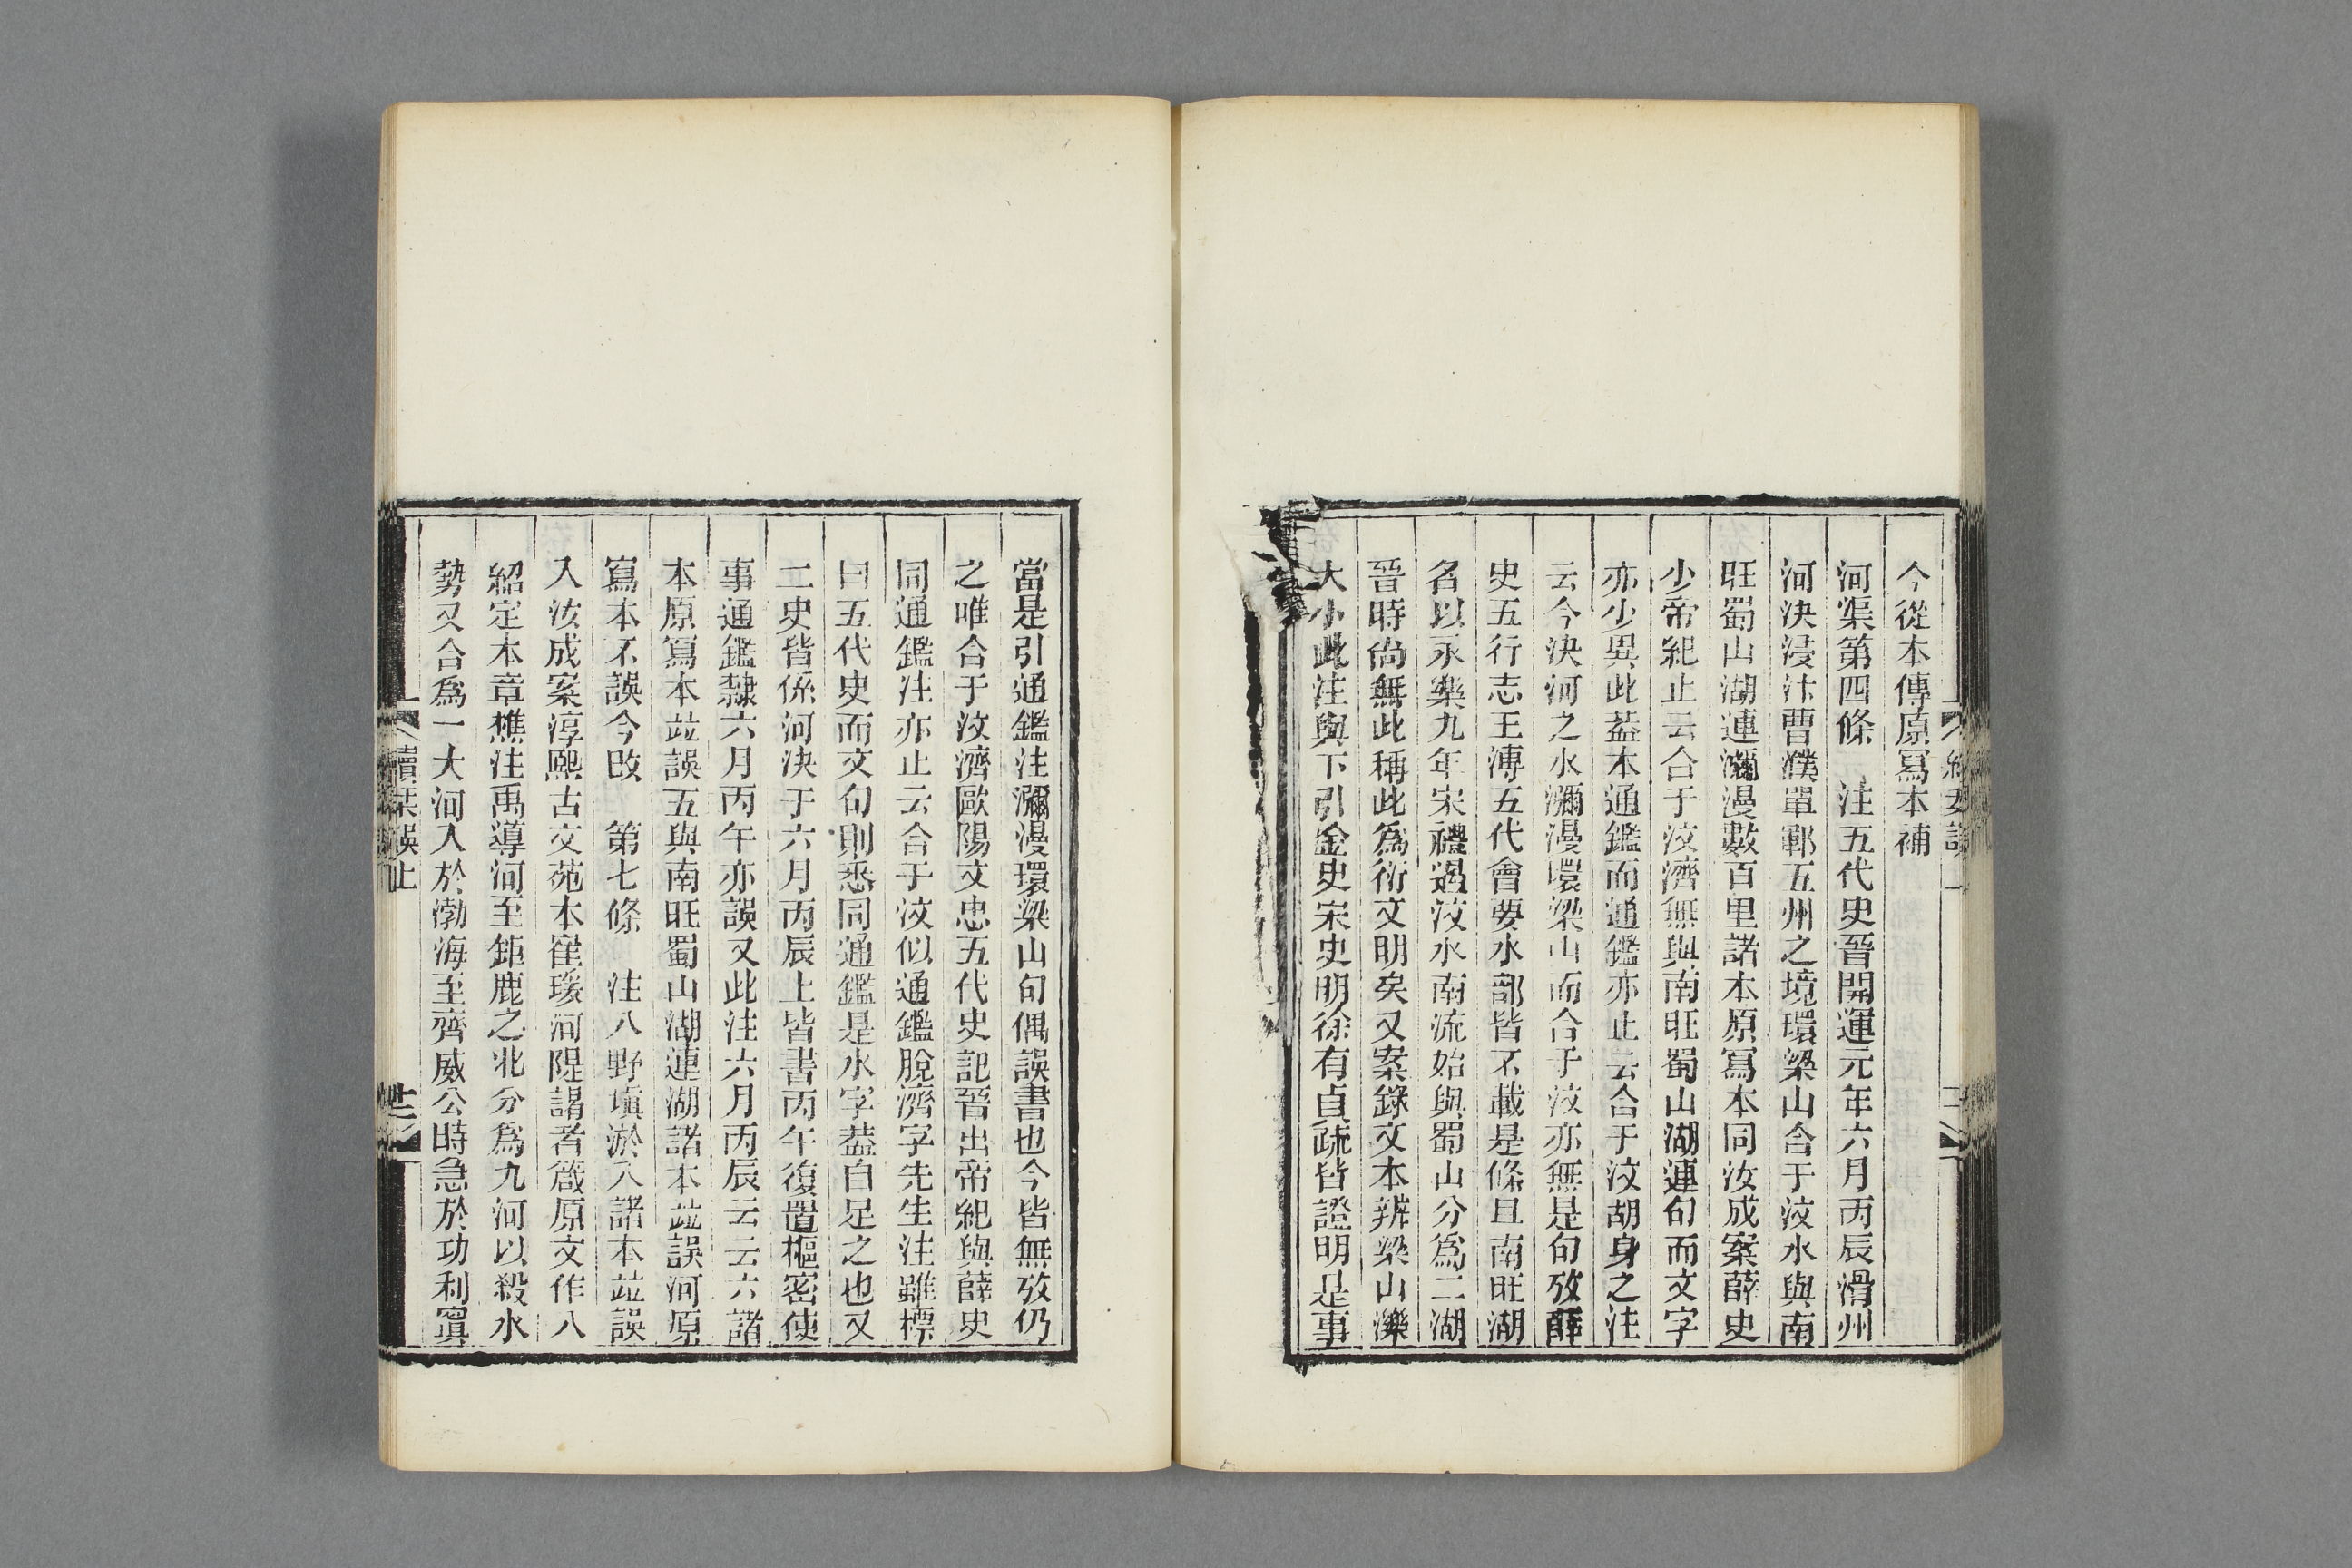 今從本傳原寫本補
河渠第四條 注五代史晉開運元年六月丙辰滑州
河決浸汴曹濮單鄆五州之境環梁山合于汶水與南
旺蜀山湖連瀰漫數百里諸本原寫本同汝成案薛史
少帝紀止云合于汶濟無與南旺蜀山湖連句而文字
亦少異此葢本通鑑而通鑑亦止云合于汶胡身之注
云今決河之水瀰漫環梁山而合于汶亦無是句攷薛
史五行志王溥五代會要水部皆不載是條且南旺湖
名以永樂九年宋禮遏汶水南流始與蜀山分爲二湖
晉時尙無此稱此爲衍文明矣又案錄文本辨梁山濼
大小此注與下引金史宋史明徐有貞疏皆證明是事
當是引通鑑注瀰漫環梁山句偶誤書也今皆無攷仍
之唯合于汶濟歐陽文忠五代史記晉出帝紀與薛史
同通鑑注亦止云合于汶似通鑑脫濟字先生注雖標
曰五代史而文句則悉同通鑑是水字葢自足之也又
二史皆係河決于六月丙辰上皆書丙午復置樞密使
事通鑑隸六月丙午亦誤又此注六月丙辰云云六諸
本原寫本竝誤五與南旺蜀山湖連湖諸本竝誤河原
寫本不誤今改 第七條 注八野塡淤入諸本竝誤
入汝成案淳熙古文苑本崔瑗河隄謁者箴原文作八
紹定本章樵注禹導河至鉅鹿之北分爲九河以殺水
勢又合爲一大河入於渤海至齊威公時急於功利寘
續栞誤上